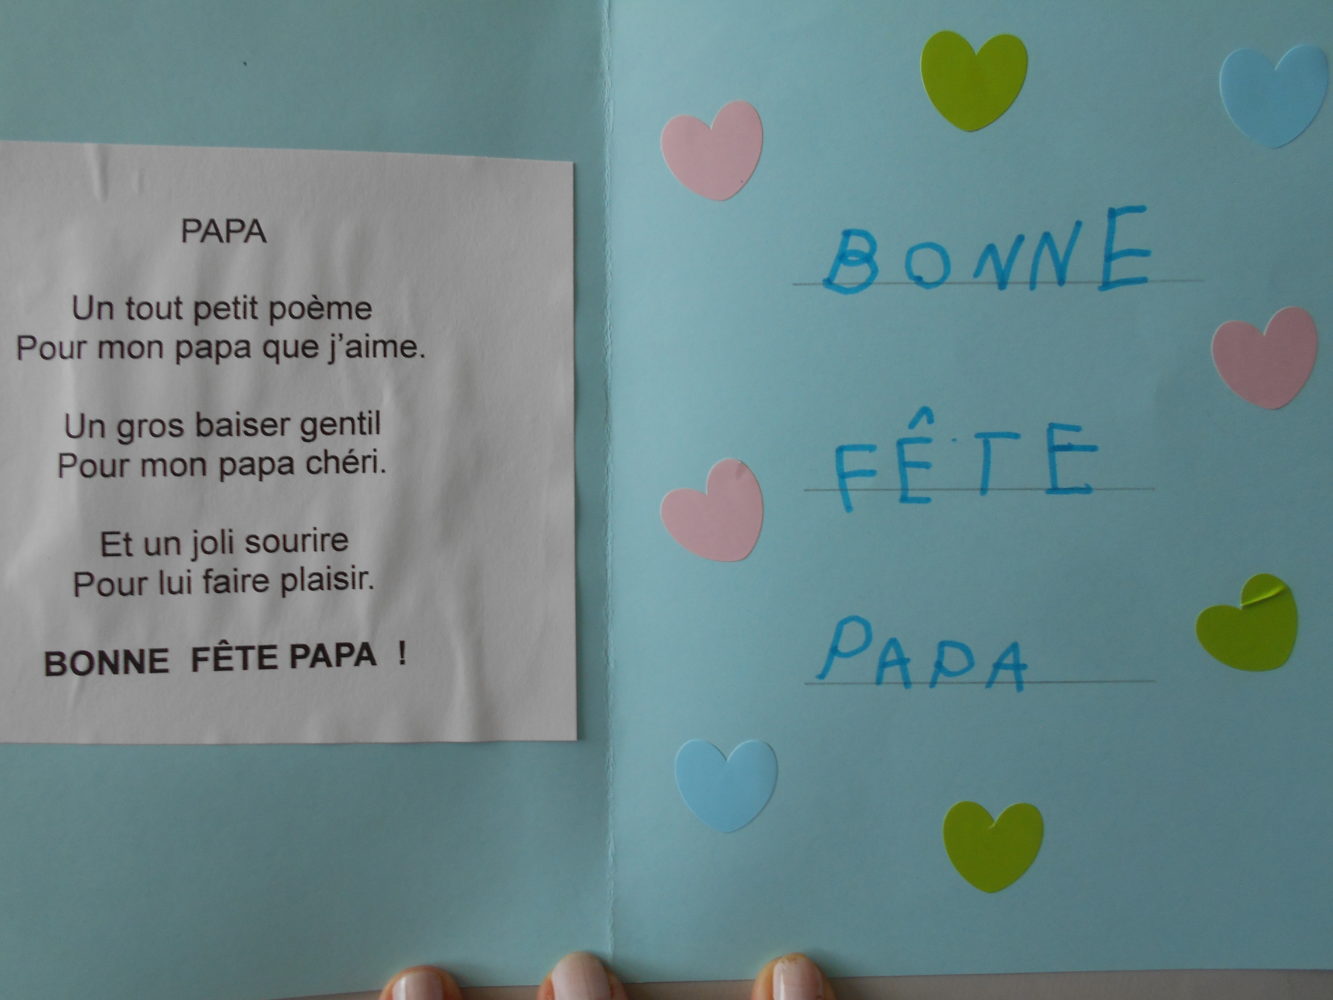 PAPA
Un tout petit poème
Pour mon papa que j'aime.
Un gros baiser gentil
Pour mon papa chéri.
Et un joli sourire
Pour lui faire plaisir.
BONNE FÊTE PAPA !
BONNE
FÊTE
PAPA